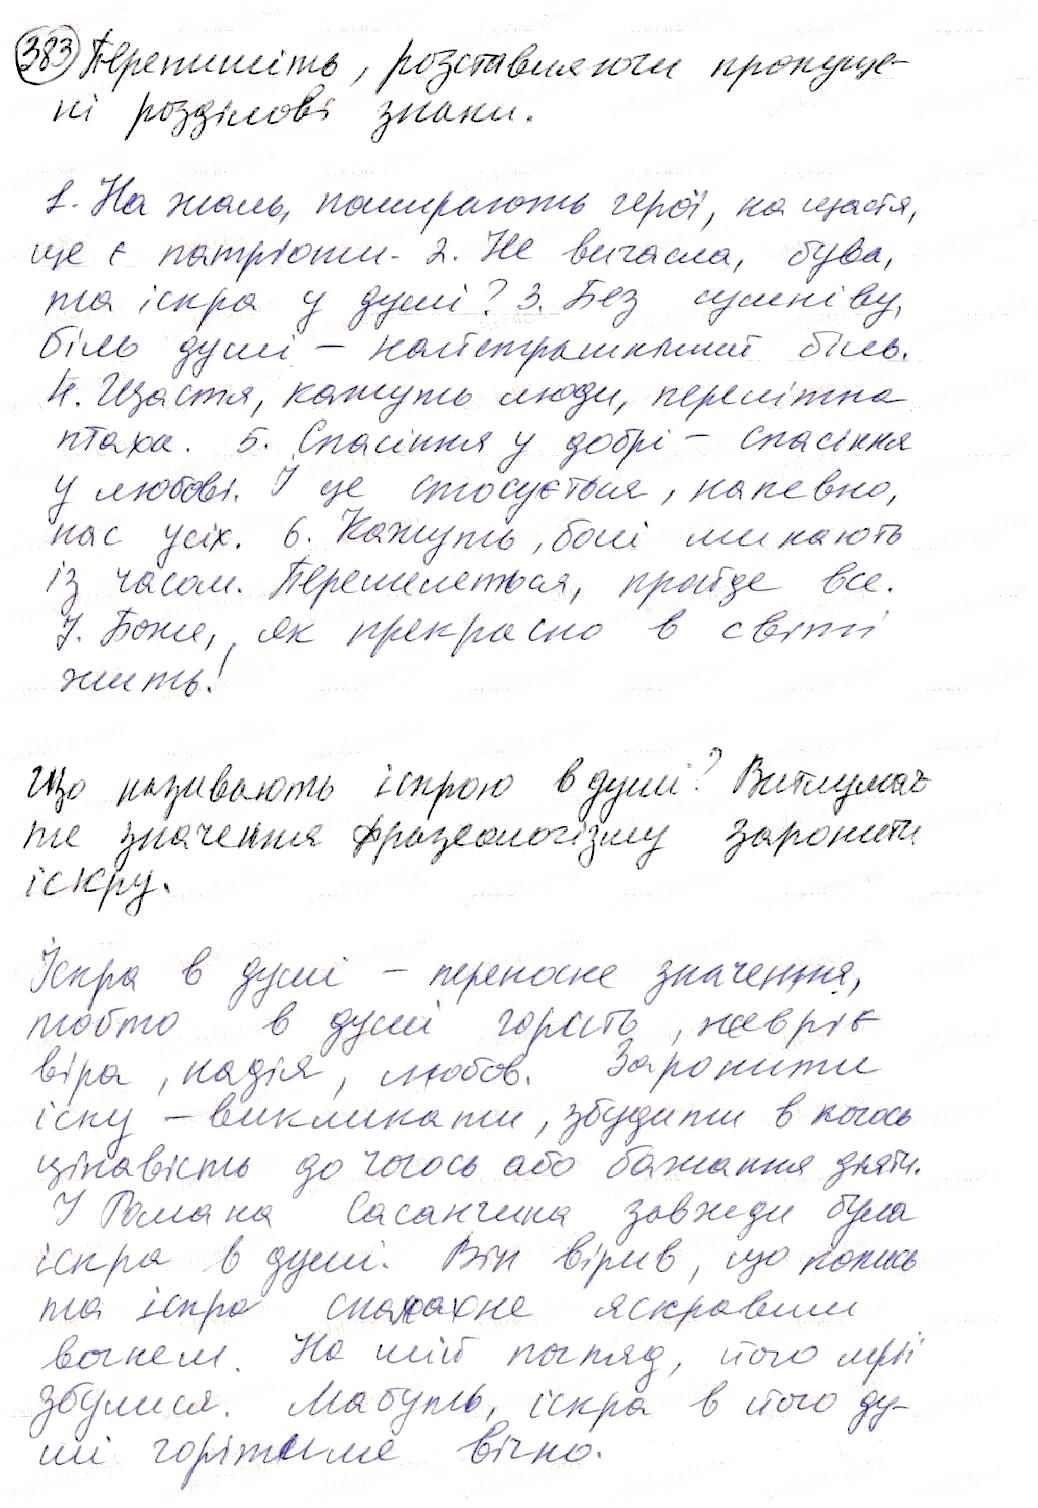 383 Перепишіть, розставляючи пропуще-
ні розділові знаки.
1. На жаль, помирають герої, на щастя,
ще є патріоти. 2. Не вигасла, бува,
та іскра у душі? 3. Без сумніву,
біль душі – найстрашніший біль.
4. Щастя, кажуть люди, перелітна
птаха. 5. Спасіння у добрі – спасіння
у любові. І це стосується, напевно,
нас усіх. 6. Кажуть, болі минають
із часом. Перемелеться, пройде все.
7. Боже, як прекрасно в світі
жить!
Що називають іскрою в душі? Витлумач-
те значення фразеологізму заронити
іскру.
Іскра в душі – переносне значення,
тобто в душі горить, жевріє
віра, надія, любов. Заронити
іску – викликати, збудити в когось
цікавість до чогось або бажання діяти.
У Романа Сасанчина завжди була
іскра в душі. Він вірив, що колись
та іскра спалахне яскравим
вогнем. На мій погляд, його мрії
збулися. Мабуть, іскра в його ду-
ші горітиме вічно.